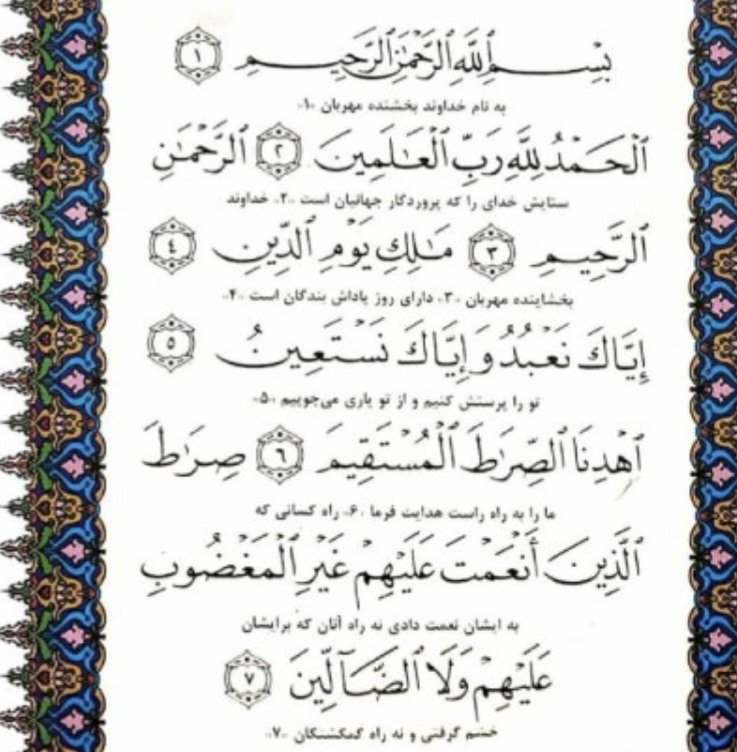 بِسْمِ ٱللَّهِ ٱلرَّحْمَٰنِ ٱلرَّحِيمِ ١
به نام خداوند بخشنده مهربان «۱»
ٱلْحَمْدُ لِلَّهِ رَبِّ ٱلْعَـٰلَمِينَ ٢ ٱلرَّحْمَـٰنِ
ستایش خدای را که پروردگار جهانیان است «۲» خداوند
ٱلرَّحِيمِ ٣ مَـٰلِكِ يَوْمِ ٱلدِّينِ ٤
بخشاینده مهربان «۳» دارای روز پاداش بندگان است «۴»
إِيَّاكَ نَعْبُدُ وَإِيَّاكَ نَسْتَعِينُ ٥
تو را پرستش کنیم و از تو یاری می‌جوییم «۵»
ٱهْدِنَا ٱلصِّرَٰطَ ٱلْمُسْتَقِيمَ ٦ صِرَٰطَ
ما را به راه راست هدایت فرما «۶» راه کسانی که
ٱلَّذِينَ أَنْعَمْتَ عَلَيْهِمْ غَيْرِ ٱلْمَغْضُوبِ
به ایشان نعمت دادی نه راه آنان که برایشان
عَلَيْهِمْ وَلَا ٱلضَّآلِّينَ ٧
خشم گرفتی و نه راه گمگشتگان «۷»